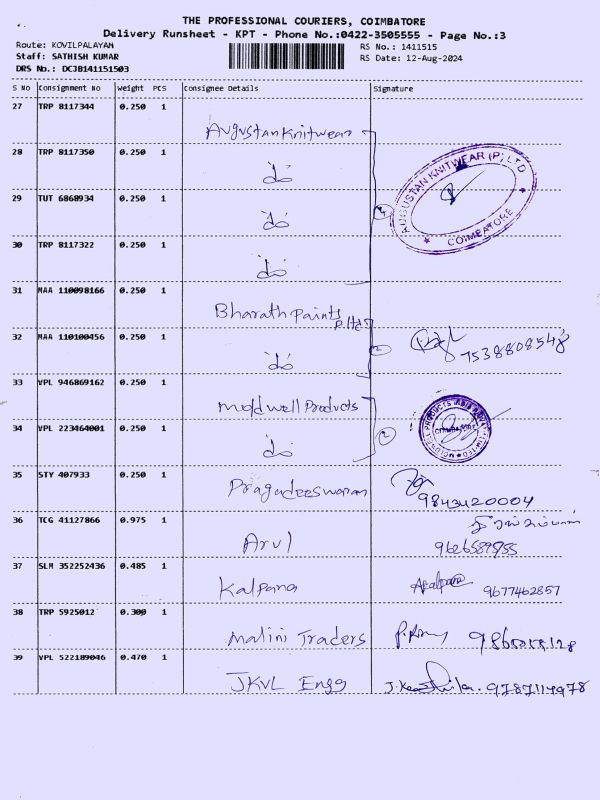 THE PROFESSIONAL COURIERS, COIMBATORE
Delivery Runsheet - KPT - Phone No.:0422-3505555 - Page No.:3
Route: KOVILPALAYAM
RS No.: 1411515
Staff: SATHISH KUMAR
RS Date: 12-Aug-2024
DRS No.: DCJB141151503
S No Consignment No Weight PCS Consignee Details Signature
27 TRP 8117344 0.250 1
Augustan Knitwear
28 TRP 8117350 0.250 1
do
29 TUT 6868934 0.250 1
do
30 TRP 8117322 0.250 1
do
AUGUSTAN KNITWEAR (P) LTD
COIMBATORE
31 MAA 110098166 0.250 1
Bharath paints
P. ltd
32 MAA 110100456 0.250 1
do
7538808548
33 VPL 946869162 0.250 1
moldwell Products
34 VPL 223464001 0.250 1
do
MOLDWELL PRODUCTS INDIA PRIVATE LIMITED
35 STY 407933 0.250 1
Pragadeeswaran
9843420004
36 TCG 41127866 0.975 1
Arul
37 SLM 352252436 0.485 1
Kalpana
9677462857
38 TRP 5925012 0.300 1
Malini Traders
39 VPL 522189046 0.470 1
JKVL Engg